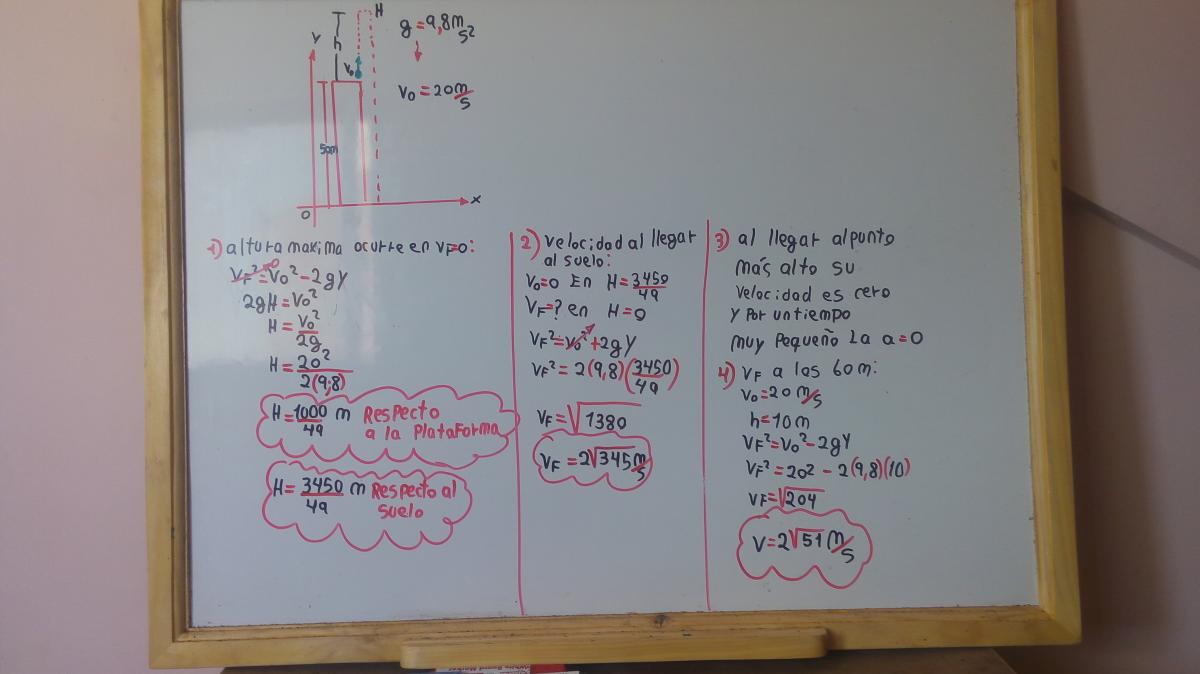 H
g = 9,8 m/s²
h
Y
V₀
V₀ = 20 m/s
50m
O
X
1) altura maxima ocurre en VF=0:
VF² = V₀² - 2gY
0
2gH = V₀²
H = V₀²/2g
H = 20²/2(9,8)
H = 1000/49 m Respecto
a la Plataforma
H = 3450/49 m Respecto al
suelo
2) velocidad al llegar
al suelo:
V₀=0 En H = 3450/49
VF=? en H = 0
VF² = V₀² + 2gY
VF² = 2(9,8)(3450/49)
VF = √1380
VF = 2√345 m/s
3) al llegar al punto
más alto su
velocidad es cero
y Por un tiempo
muy Pequeño La a = 0
4) VF a los 60m:
V₀ = 20 m/s
h = 10m
VF² = V₀² - 2gY
VF² = 20² - 2(9,8)(10)
VF = √204
V = 2√51 m/s